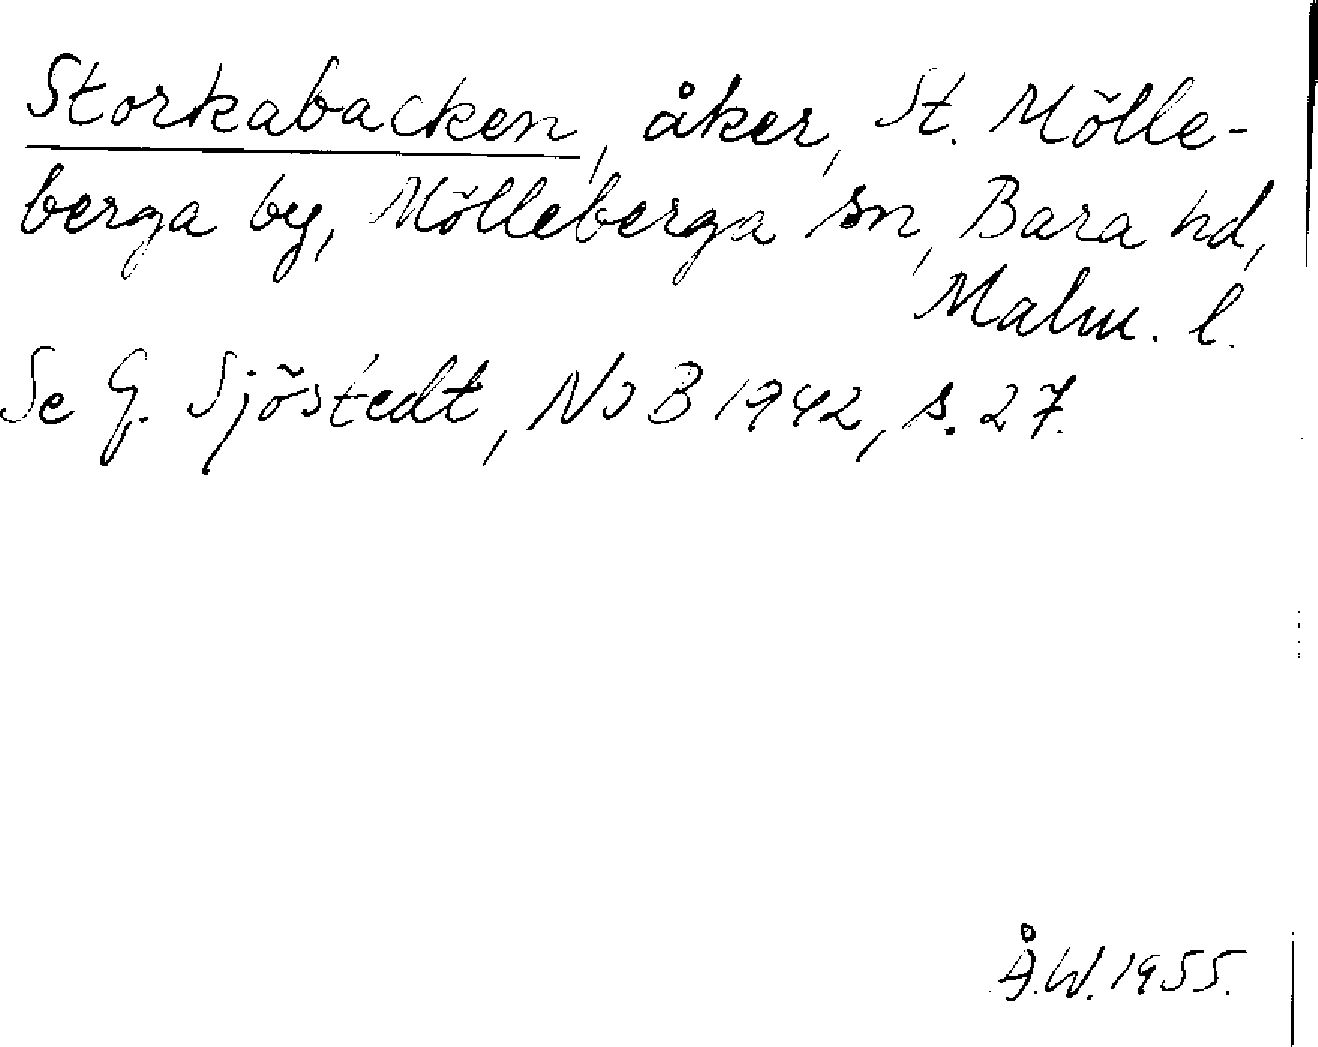 Storkabacken, åker, St. Mölle-
berga by, Mölleberga sn, Bara hd,
Malm. l.
Se G. Sjöstedt, NoB 1942, s. 27.
Å.W. 1955.